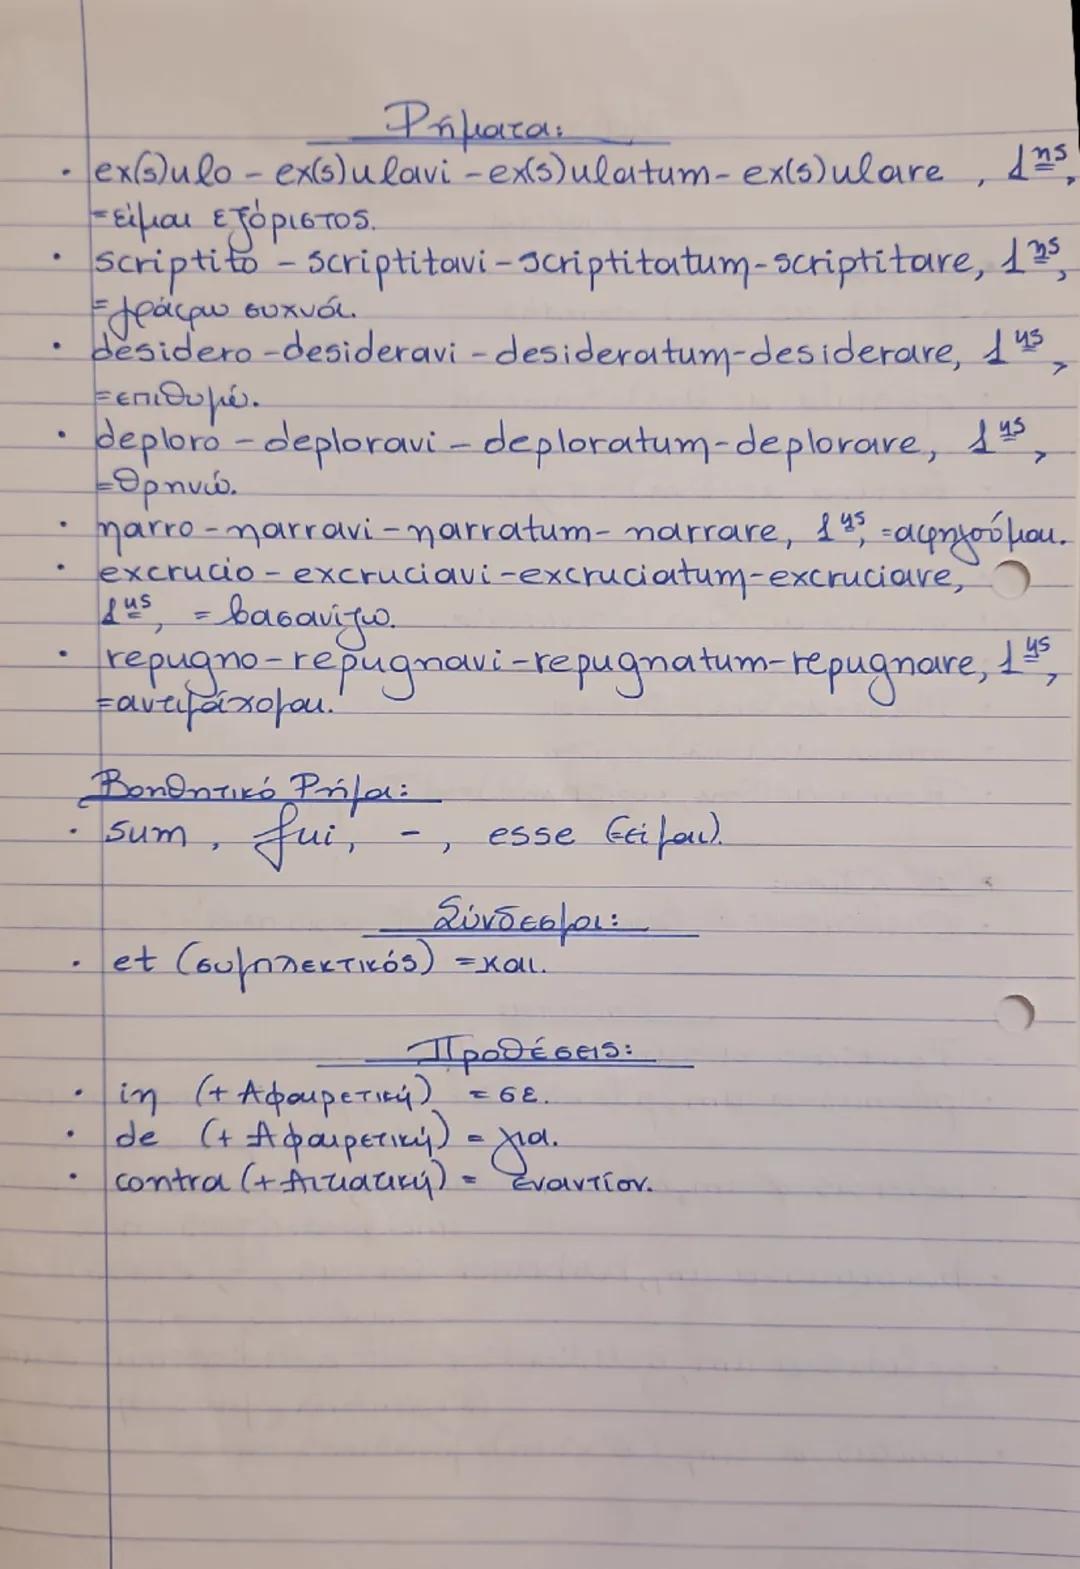 Ρήματα:
· ex(s)ulo - ex(s)ulavi - ex(s)ulatum - ex(s)ulare, 1ης,
=είμαι εξόριστος.
· scriptito - scriptitavi - scriptitatum - scriptitare, 1ης,
=γράφω συχνά.
· desidero - desideravi - desideratum - desiderare, 1ης,
=επιθυμώ.
· deploro - deploravi - deploratum - deplorare, 1ης,
=θρηνώ.
· narro - narravi - narratum - narrare, 1ης, =αφηγούμαι.
· excrucio - excruciavi - excruciatum - excruciare,
1ης, = βασανίζω.
· repugno - repugnavi - repugnatum - repugnare, 1ης,
=αντιμάχομαι.
Βοηθητικό Ρήμα:
· sum, fui, -, esse (=είμαι).
Σύνδεσμοι:
· et (συμπλεκτικός) =και.
Προθέσεις:
· in (+ Αφαιρετική) = σε.
· de (+ Αφαιρετική) = για.
· contra (+ Αιτιατική) = εναντίον.